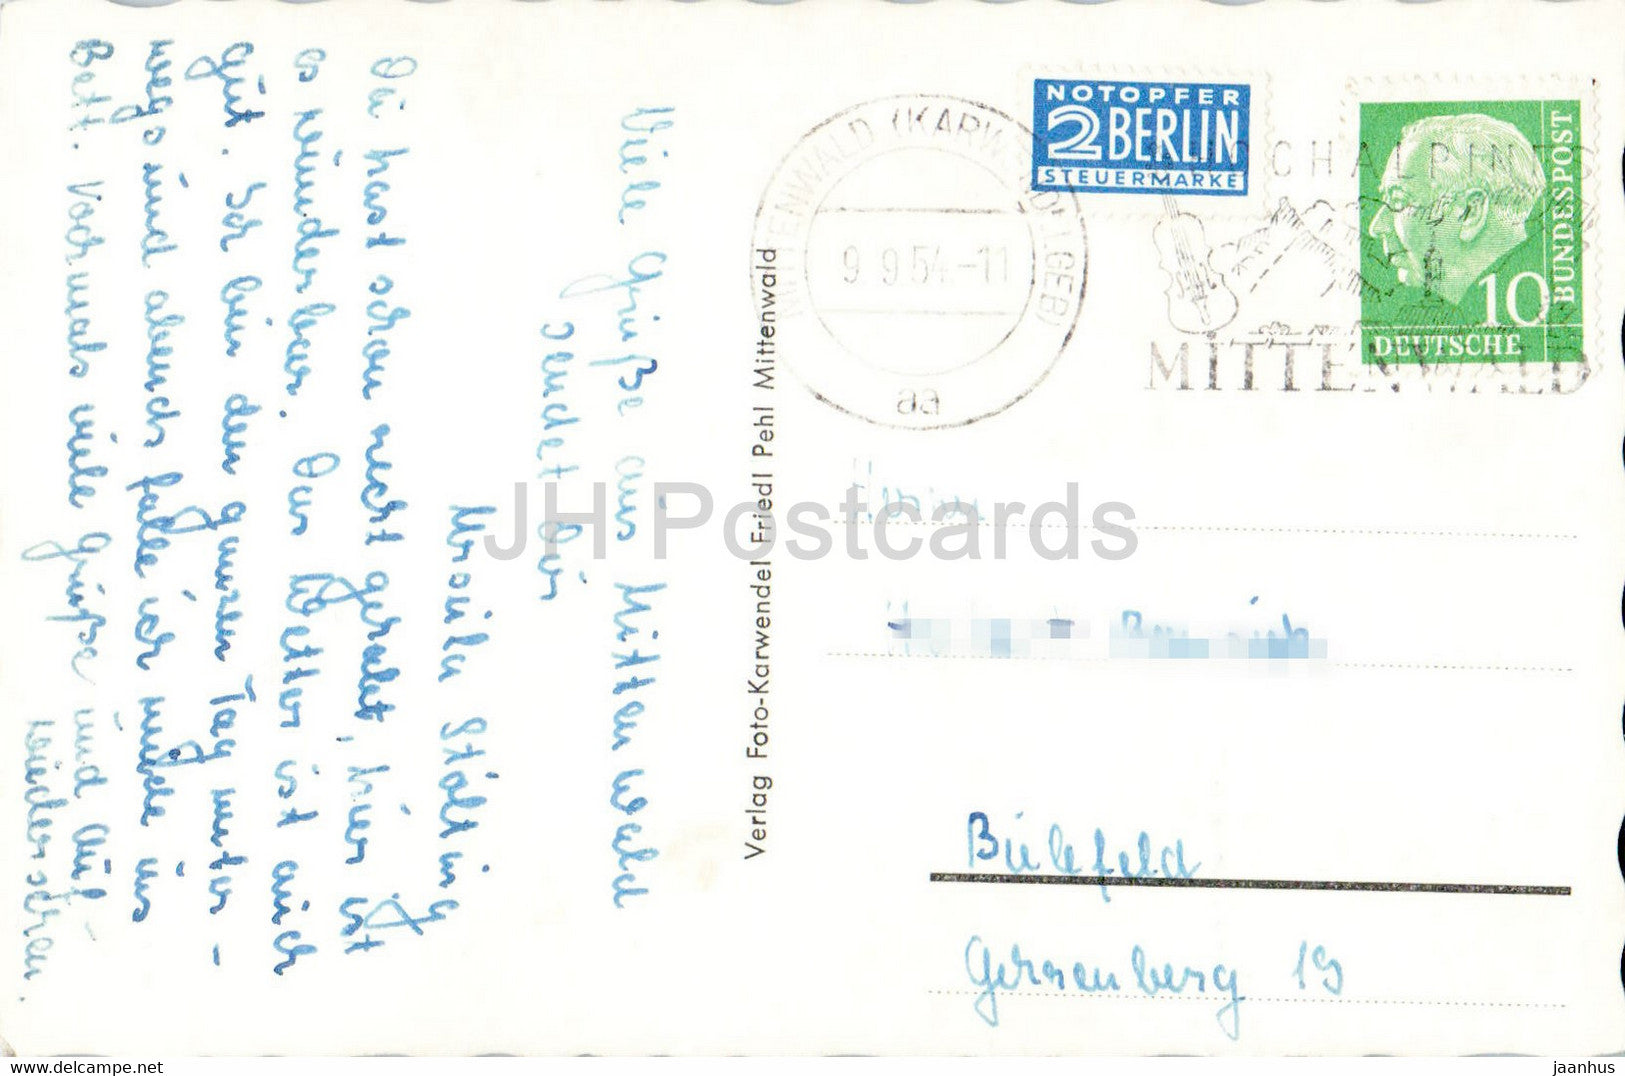 Viele Grüße aus Mittenwald
sendet Dir
Ursula Stölting
Du hast schon recht gehabt, hier ist
es wunderbar. Das Wetter ist auch
gut. Ich bin den ganzen Tag unter-
wegs und abends falle ich müde ins
Bett. Vormals viele Grüße und Auf-
wiedersehen.
Verlag Foto-Karwendel Friedl Pehl Mittenwald
NOTOPFER
2 BERLIN
STEUERMARKE
MITTENWALD (KARWENDELGEB)
9.9.54-11
aa
HOCHALPINES
MITTENWALD
DEUTSCHE
BUNDESPOST
10
Herrn
Bielefeld
Gersenberg 19
JH Postcards
delcampe.net
jaanhus